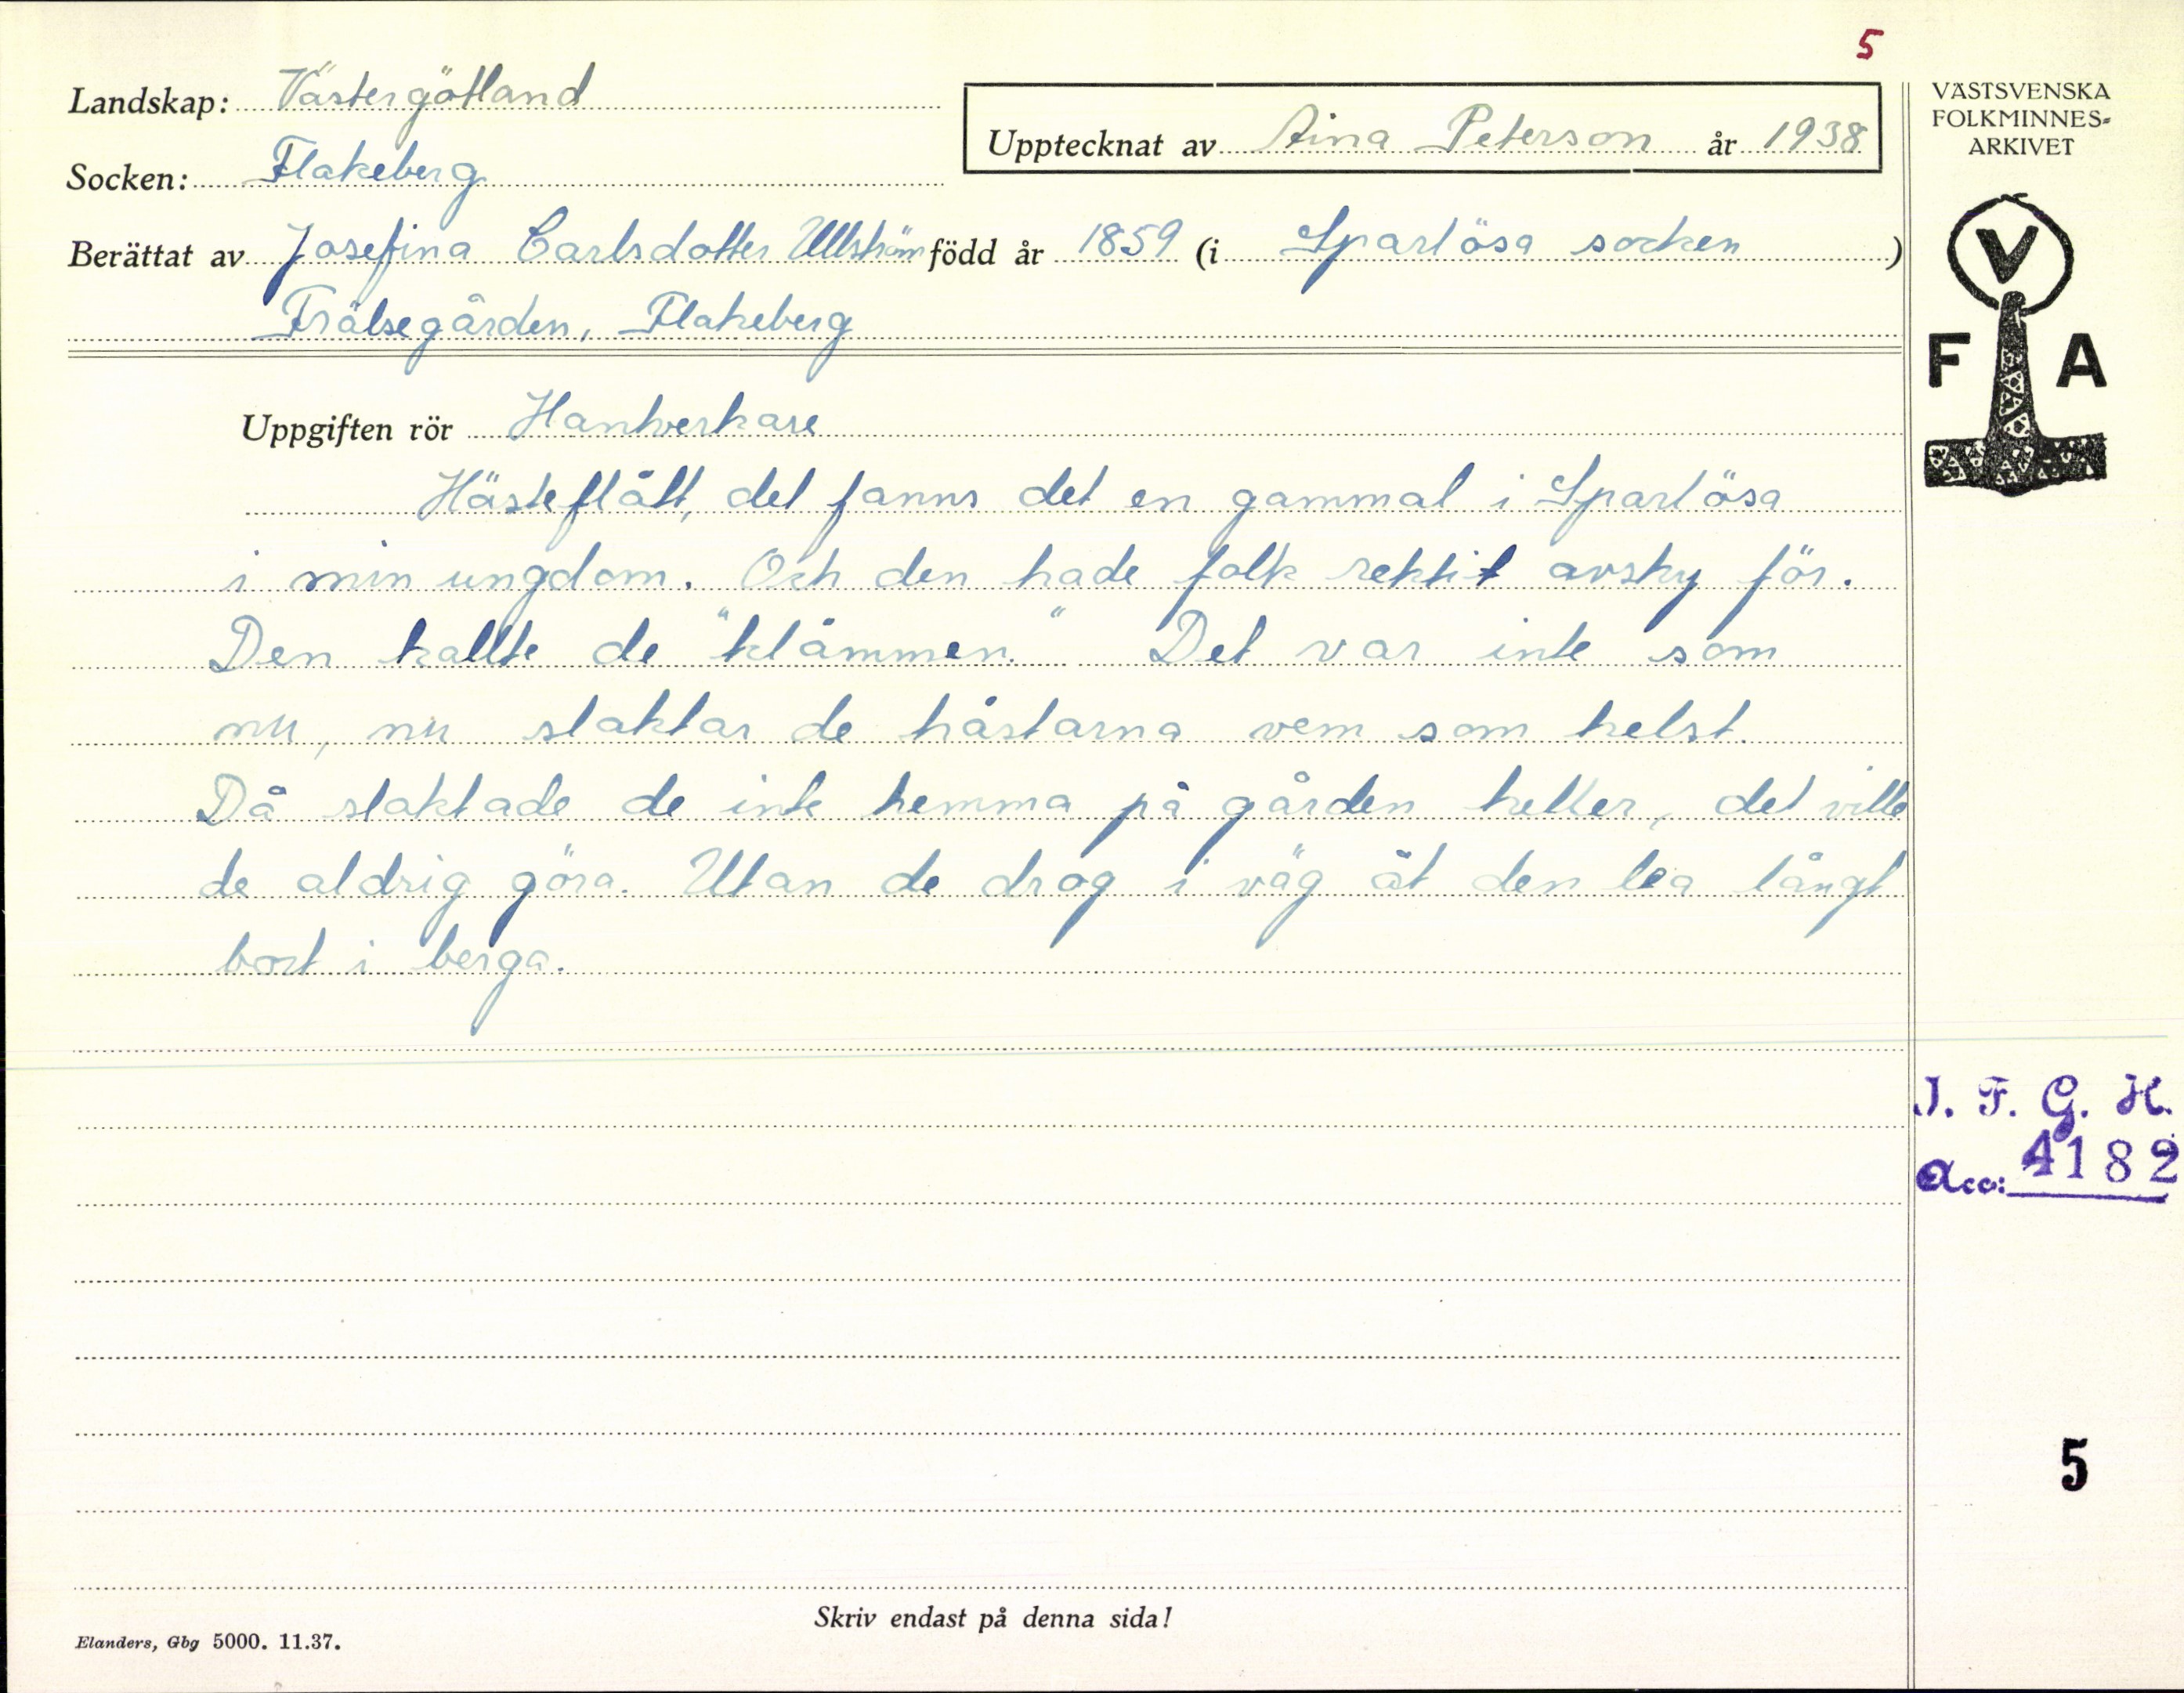 5
Landskap: Västergötland
Upptecknat av Aina Peterson år 1938
Socken: Flakeberg
Berättat av Josefina Carlsdotter Ullström född år 1859 (i Sparlösa socken)
Frälsegården, Flakeberg
Uppgiften rör Hantverkare
Hästeflått, det fanns det en gammal i Sparlösa
i min ungdom. Och den hade folk rektit avsky för.
Den kallte de "klämmen." Det var inte som
nu, nu slaktar de hästarna vem som helst.
Då slaktade de inte hemma på gården heller, det ville
de aldrig göra. Utan de drog i väg åt den lea långt
bort i berga.
Skriv endast på denna sida!
Elanders, Gbg 5000. 11.37.
VÄSTSVENSKA
FOLKMINNES-
ARKIVET
V
F A
I. F. G. H.
Acc: 4182
5